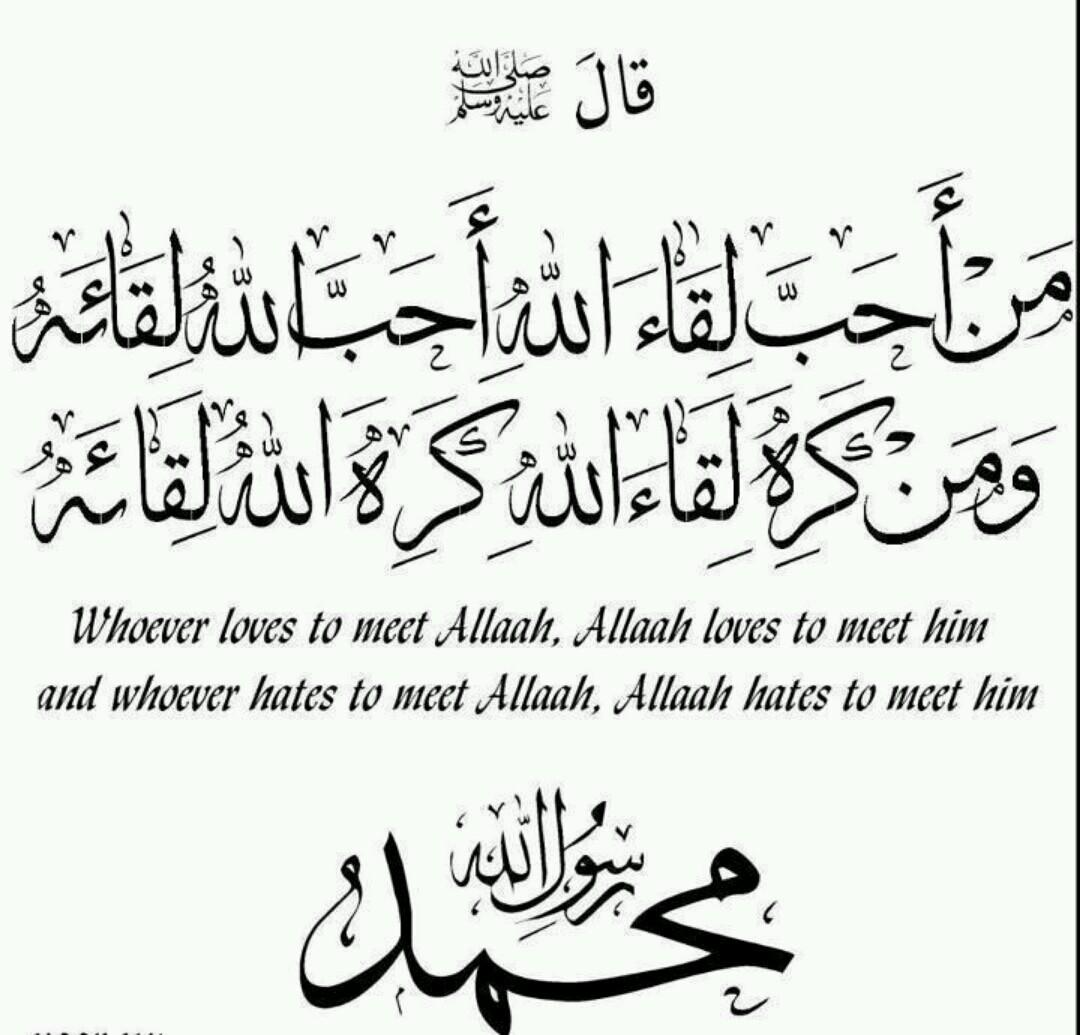 قَالَ صَلَّى اللهُ عَلَيْهِ وَسَلَّمَ
مَنْ أَحَبَّ لِقَاءَ اللهِ أَحَبَّ اللهُ لِقَائَهُ
وَمَنْ كَرِهَ لِقَاءَ اللهِ كَرِهَ اللهُ لِقَائَهُ
Whoever loves to meet Allaah, Allaah loves to meet him
and whoever hates to meet Allaah, Allaah hates to meet him
محمد رسول الله